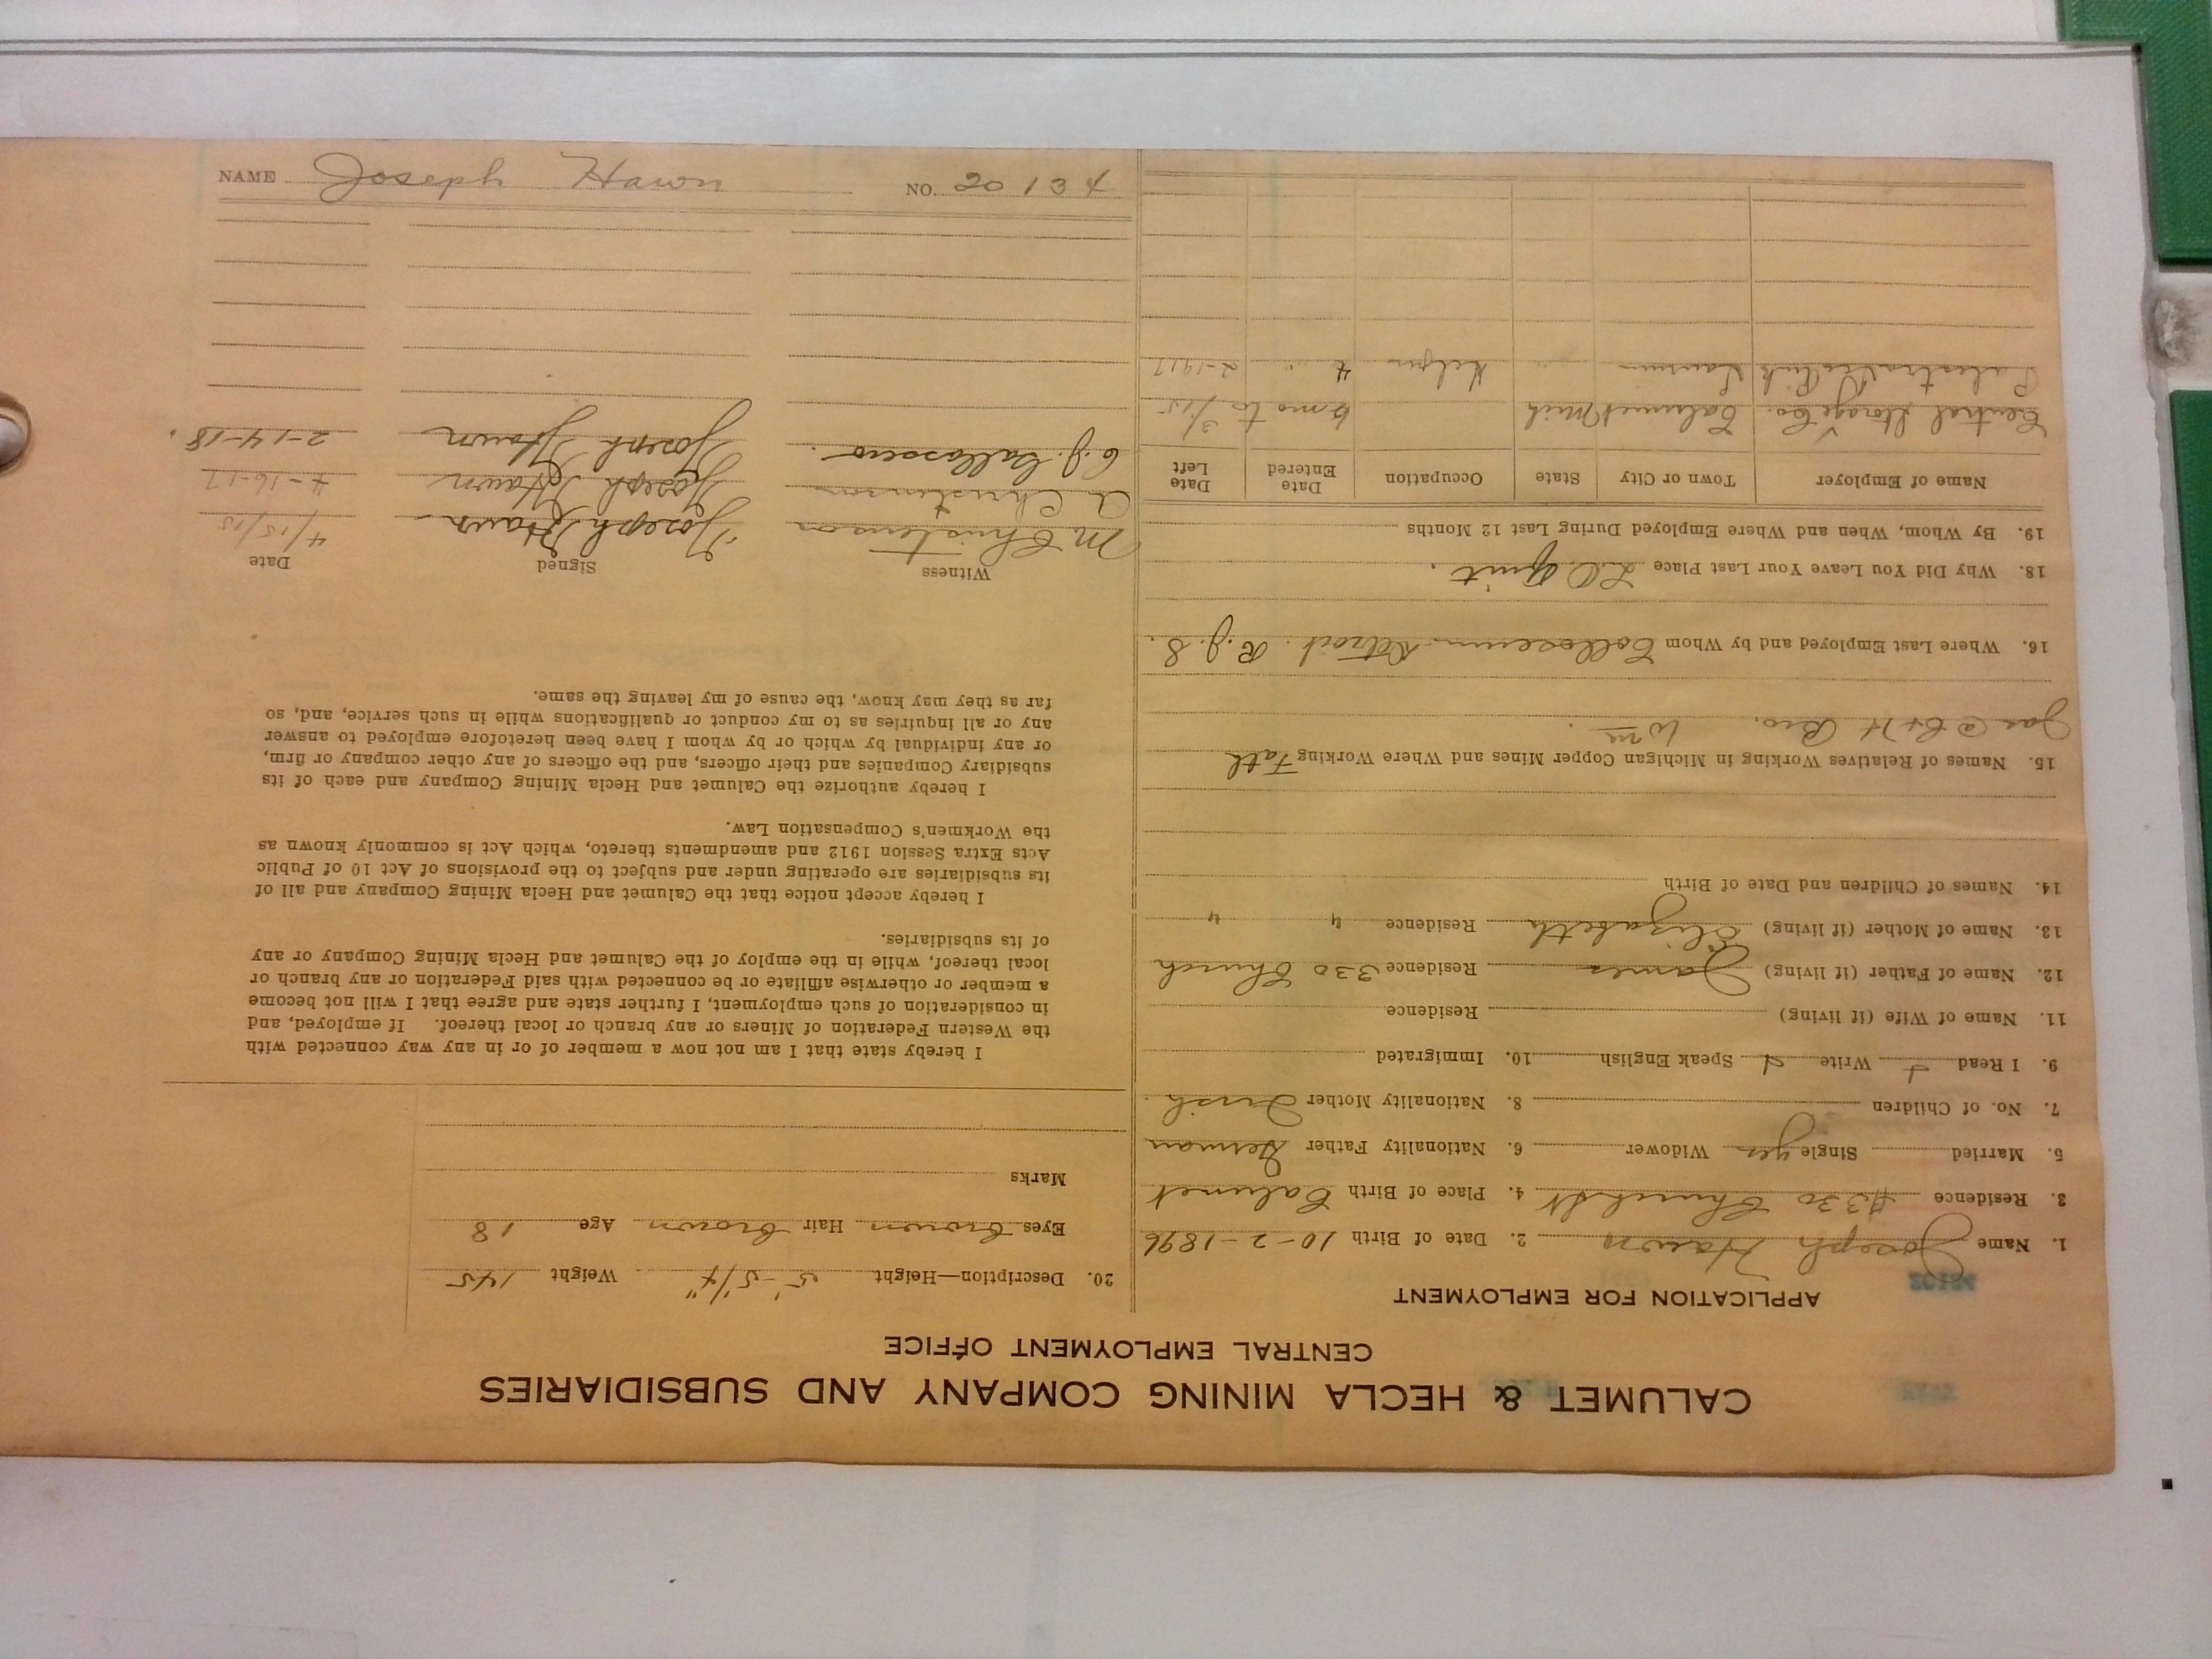 CALUMET & HECLA MINING COMPANY AND SUBSIDIARIES
CENTRAL EMPLOYMENT OFFICE
APPLICATION FOR EMPLOYMENT
1. Name Joseph Hawn 2. Date of Birth 10-2-1896
3. Residence 330 Church St 4. Place of Birth Calumet
5. Married Single yes Widower 6. Nationality Father German
7. No. of Children 8. Nationality Mother Irish.
9. I Read Write Speak English 10. Immigrated
11. Name of Wife (if living) Residence
12. Name of Father (if living) James Residence 330 Church
13. Name of Mother (if living) Elizabeth Residence " "
14. Names of Children and Date of Birth
15. Names of Relatives Working in Michigan Copper Mines and Where Working Fath
Jas @ C+H Bro. Wm.
16. Where Last Employed and by Whom Detroit. R.J.S.
18. Why Did You Leave Your Last Place Quit.
19. By Whom, When and Where Employed During Last 12 Months
Name of Employer Town or City State Occupation Date Entered Date Left
Central Storage Co. Calumet Mich 6 mo to 3/15
Laurium Helper 2-1917
20. Description—Height 5'-5 1/4" Weight 145
Eyes brown Hair brown Age 18
Marks
I hereby state that I am not now a member of or in any way connected with
the Western Federation of Miners or any branch or local thereof. If employed, and
in consideration of such employment, I further state and agree that I will not become
a member or otherwise affiliate or be connected with said Federation or any branch or
local thereof, while in the employ of the Calumet and Hecla Mining Company or any
of its subsidiaries.
I hereby accept notice that the Calumet and Hecla Mining Company and all of
its subsidiaries are operating under and subject to the provisions of Act 10 of Public
Acts Extra Session 1912 and amendments thereto, which Act is commonly known as
the Workmen's Compensation Law.
I hereby authorize the Calumet and Hecla Mining Company and each of its
subsidiary Companies and their officers, and the officers of any other company or firm,
or any individual by which or by whom I have been heretofore employed to answer
any or all inquiries as to my conduct or qualifications while in such service, and, so
far as they may know, the cause of my leaving the same.
Witness Signed Date
M Christenson Joseph Hawn 4/15/15
A Christenson Joseph Hawn 4-16-17
C.J. Joseph Hawn 2-14-18.
NAME Joseph Hawn NO. 20134